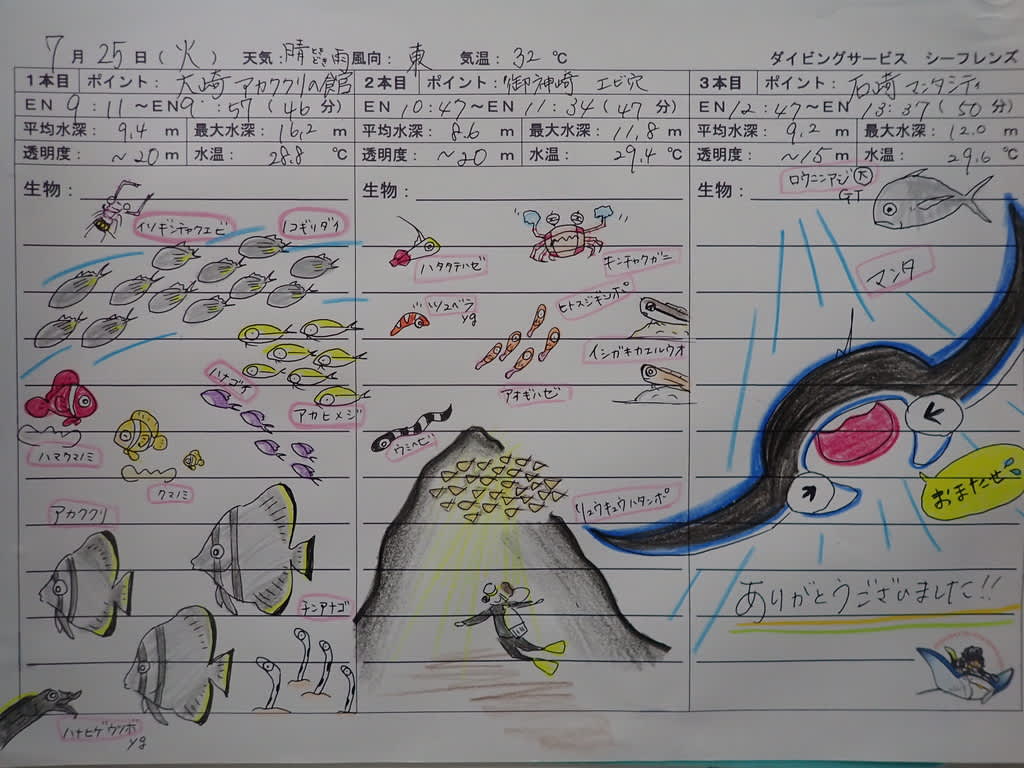 7月25日(火) 天気:晴ときどき雨 風向:東 気温:32℃ ダイビングサービス シーフレンズ
1本目 ポイント:大崎 アカククリの館
EN 9:11～EN 9:57(46分)
平均水深:9.4m 最大水深:16.2m
透明度:～20m 水温:28.8℃
生物:
イソギンチャクエビ
ノコギリダイ
ハナゴイ
アカヒメジ
ハマクマノミ
クマノミ
アカククリ
チンアナゴ
ハナヒゲウツボ
yg
2本目 ポイント:御神崎 エビ穴
EN 10:47～EN 11:34(47分)
平均水深:8.6m 最大水深:11.8m
透明度:～20m 水温:29.4℃
生物:
ハタタテハゼ
キンチャクガニ
ツユベラ
yg
ヒトスジギンポ
イシガキカエルウオ
アオギハゼ
ウミヘビ
リュウキュウハタンポ
3本目 ポイント:石崎 マンタシティ
EN 12:47～EN 13:37(50分)
平均水深:9.2m 最大水深:12.0m
透明度:～15m 水温:29.6℃
生物:
ロウニンアジ大
GT
マンタ
おまたせ
ありがとうございました!!